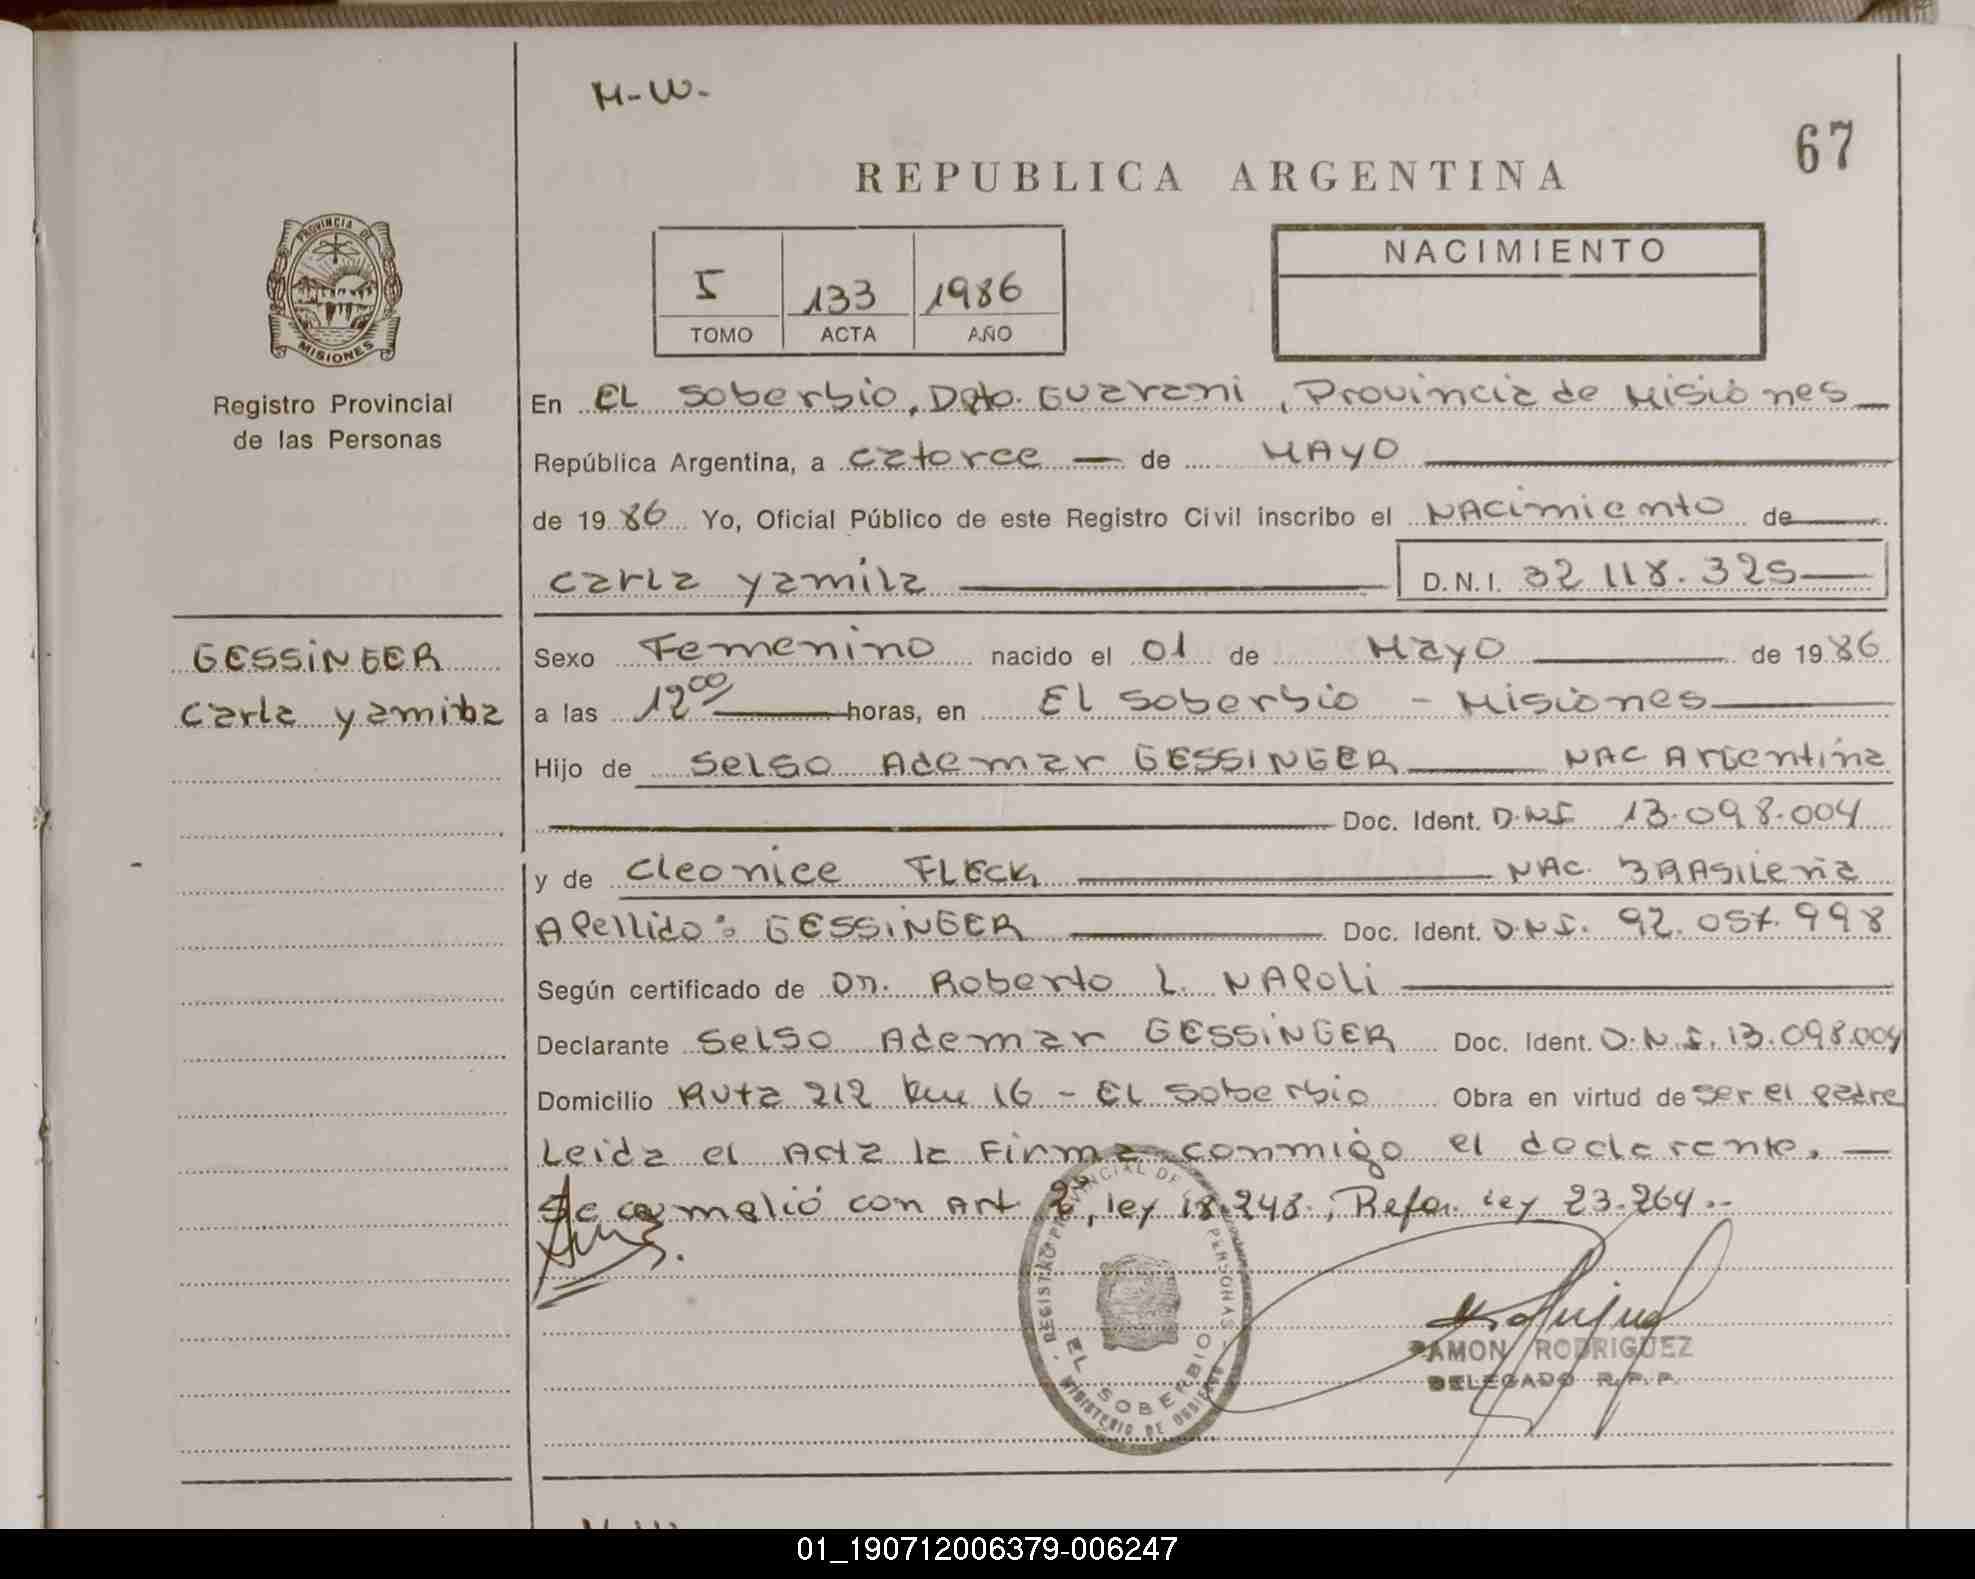 M-W.
67
REPUBLICA ARGENTINA
PROVINCIA DE
MISIONES
Registro Provincial
de las Personas
I 133 1986
TOMO ACTA AÑO
NACIMIENTO
En EL Soberbio, Dpto. GUarani, Provincia de Misiones
República Argentina, a catorce de MAYO
de 1986 Yo, Oficial Público de este Registro Civil inscribo el NAcimiento de
carla yamila D.N.I. 32 118.325
GESSiNGER
Carla yamila
Sexo Femenino nacido el 01 de Mayo de 1986
a las 12 00 horas, en El Soberbio - Misiones
Hijo de Selso Ademar GESSINGER NAC Argentina
Doc. Ident. D.N.I 13.098.004
y de Cleonice FLECK NAC. BRASileña
Apellido: GESSiNGER Doc. Ident. D.N.I. 92.057.998
Según certificado de Dr. Roberto L. NAPoli
Declarante Selso Ademar GESSiNGER Doc. Ident. D.N.I. 13.098.004
Domicilio Ruta 212 Km 16 - EL Soberbio Obra en virtud de ser el padre
Leida el Acta la Firma conmigo el declarante.
Se cumplió con Art 2°, ley 18.248, Refor. ley 23.264.-
REGISTRO PROVINCIAL DE PERSONAS
EL SOBERBIO
MINISTERIO DE
RAMON RODRIGUEZ
DELEGADO R.P.P.
01_190712006379-006247